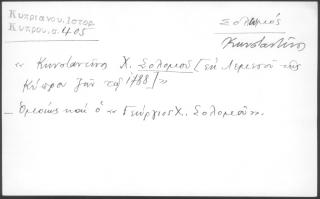 Κυπριανου, Ιστορ.
Κυπρου, σ. 405
Σολωμός
Κωνσταντίνος
« Κωνσταντίνος Χ. Σολομού [ἐκ Λεμεσοῦ τῆς
Κύπρου ζῶν τῷ 1788]»
– Ὁμοίως καὶ ὁ « Γεώργιος Χ. Σολομοῦ».